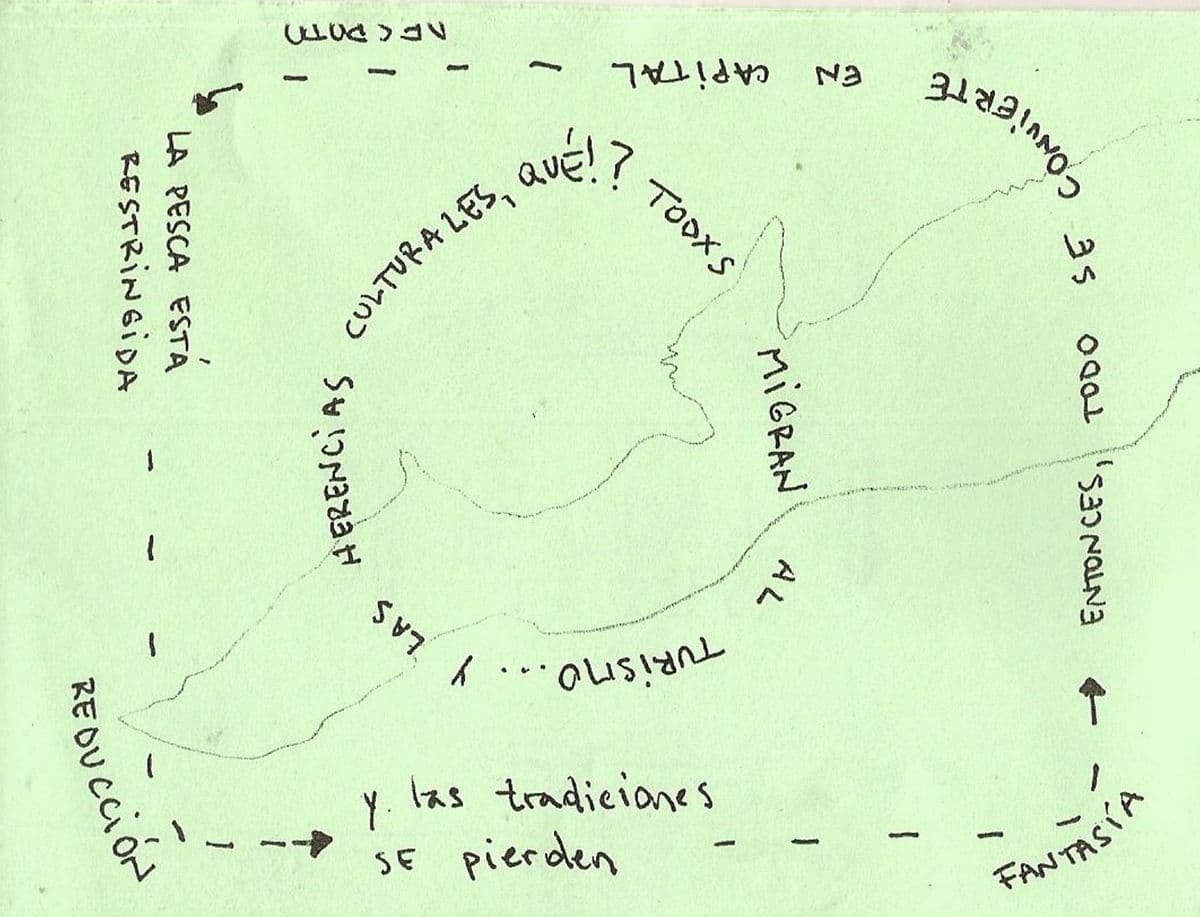 LA PESCA ESTÁ
RESTRiNGiDA
REDUCCiÓN
y. las tradiciones
SE pierden
FANTASÍA
ENTONCES, TODO SE CONViERTE EN CAPiTAL
LAS HERENCiAS CULTURALES, QUÉ!? TODXS MiGRAN AL TURiSMO... Y